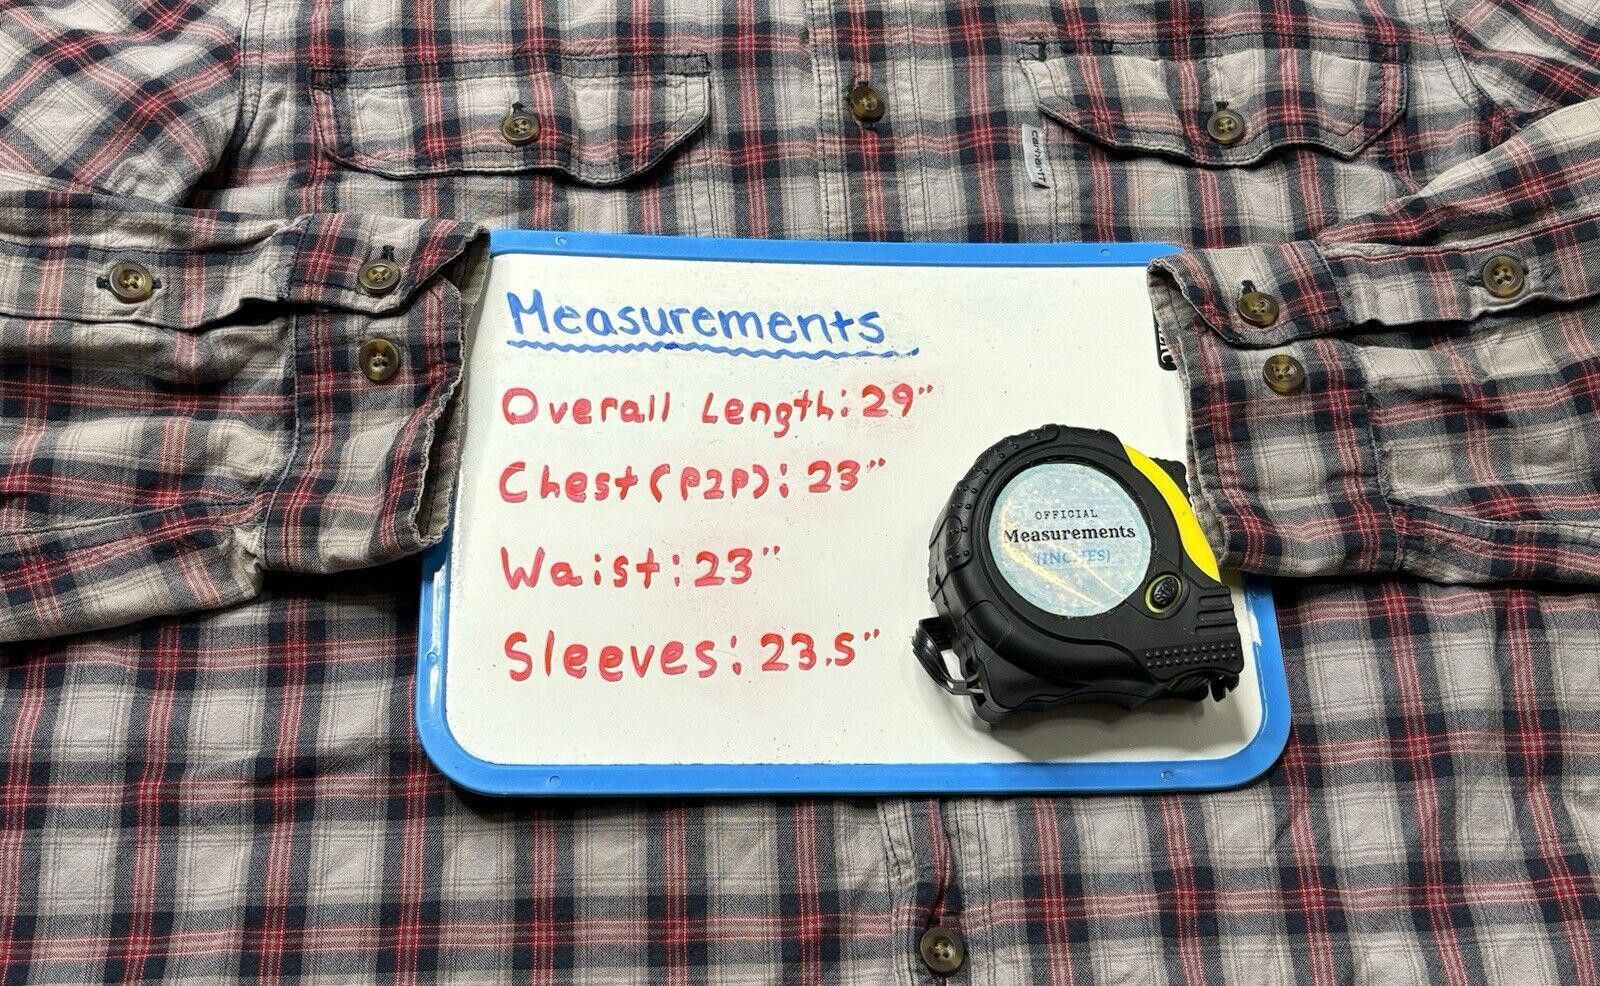 carhartt
Measurements
Overall Length: 29"
Chest(P2P): 23"
Waist: 23"
Sleeves: 23.5"
OFFICIAL
Measurements
(INCHES)